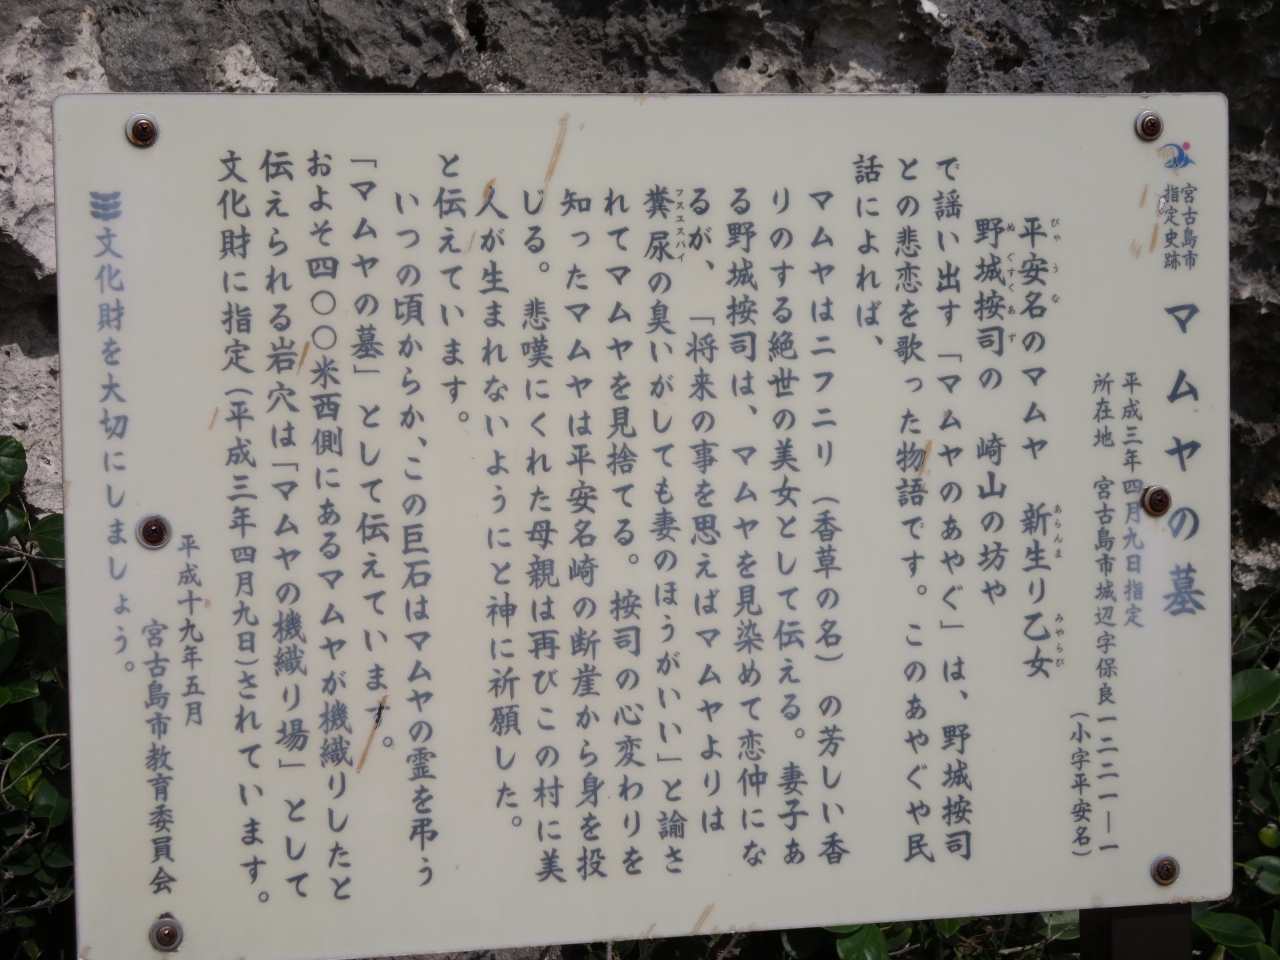 宮古島市
指定史跡
マムヤの墓
平成三年四月九日指定
所在地 宮古島市城辺字保良一二二一―一
(小字平安名)
平安名のマムヤ 新生り乙女
ぴゃうな あらんま みやらび
野城按司の 崎山の坊や
ぬぐすくあず
で謡い出す「マムヤのあやぐ」は、野城按司
との悲恋を歌った物語です。このあやぐや民
話によれば、
マムヤはニフニリ(香草の名)の芳しい香
りのする絶世の美女として伝える。妻子あ
る野城按司は、マムヤを見染めて恋仲にな
るが、「将来の事を思えばマムヤよりは
糞尿の臭いがしても妻のほうがいい」と諭さ
フスユスバイ
れてマムヤを見捨てる。按司の心変わりを
知ったマムヤは平安名崎の断崖から身を投
じる。悲嘆にくれた母親は再びこの村に美
人が生まれないようにと神に祈願した。
と伝えています。
いつの頃からか、この巨石はマムヤの霊を弔う
「マムヤの墓」として伝えています。
およそ四〇〇米西側にあるマムヤが機織りしたと
伝えられる岩穴は「マムヤの機織り場」として
文化財に指定(平成三年四月九日)されています。
平成十九年五月
宮古島市教育委員会
文化財を大切にしましょう。